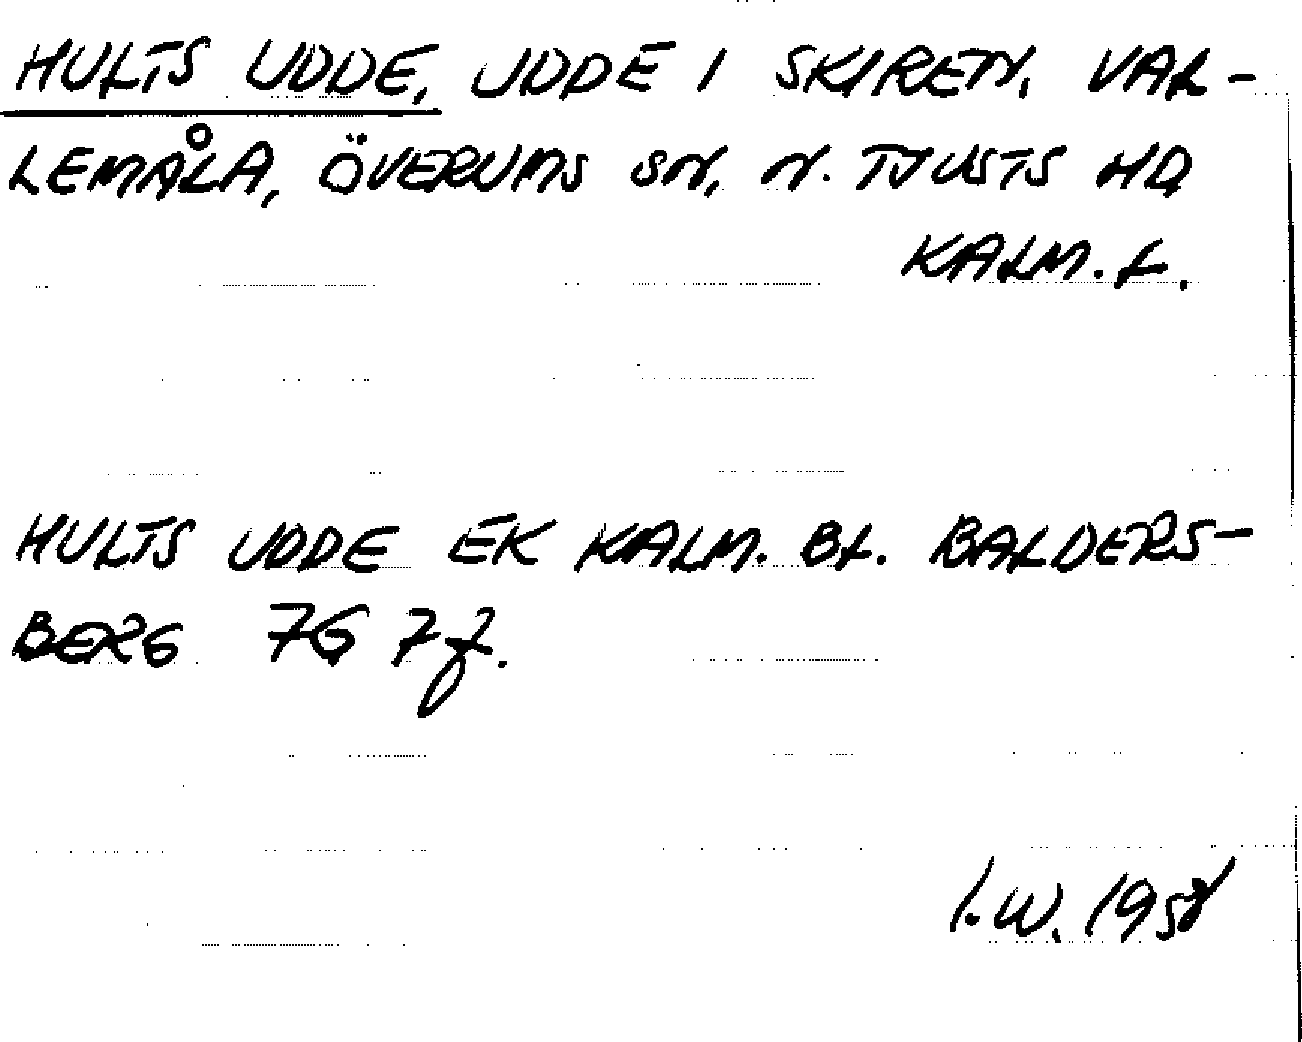 HULTS UDDE, UDDE I SKIREN, VAL-
LEMÅLA, ÖVERUMS SN, N. TJUSTS HD
KALM. L.
HULTS UDDE EK KALM. BL. BALDERS-
BERG 7G 7f.
I.W. 1958